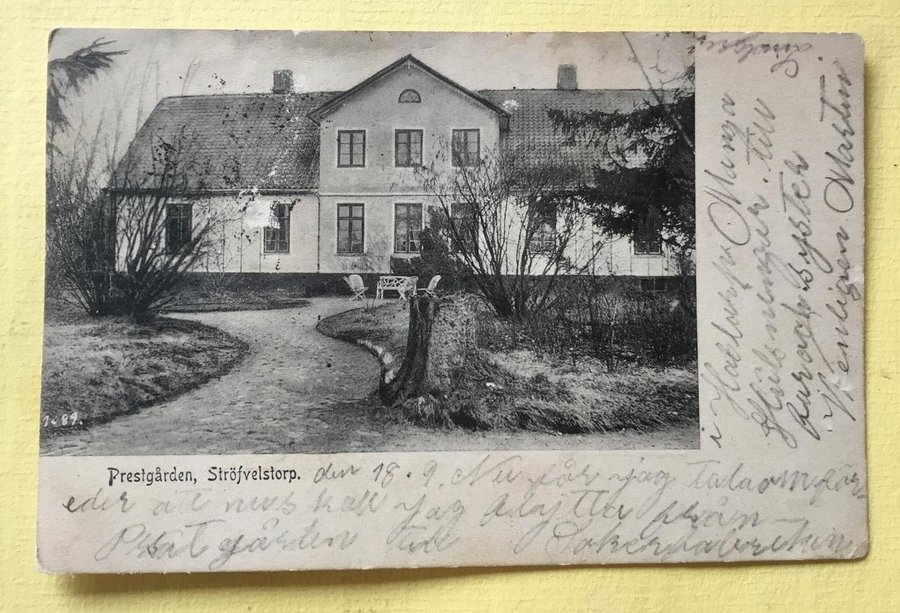 Prestgården, Ströfvelstorp. den 18. 9. Nu får jag tala om för
eder att nu skall jag flötta från
Prestgården till Sokerfabriken
i
Många
Hälsningar till
bror och syster
Venligen Martin
1489.